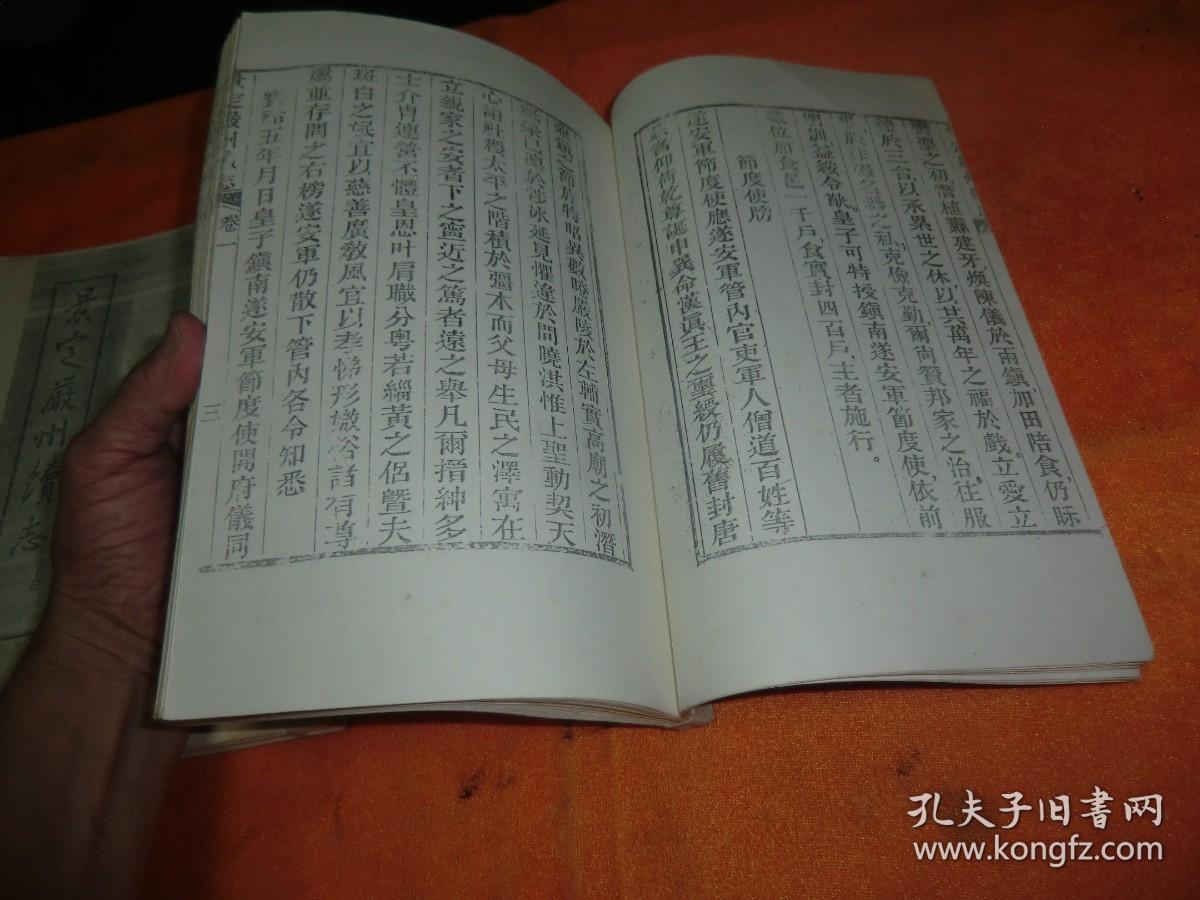 聖之初幣植纛建牙煥陳儀於兩鎮加田陪食仍眎
於三台以承累世之休以艽萬年之福於戲立愛立
之私克儉克勤爾尚贊邦家之治往服
明訓益綏令猷皇子可特授鎮南遂安軍節度使依前
位加食邑一千戶食實封四百戶主者施行
節度使牓
遂安軍節度使應遂安軍管內官吏軍人僧道百姓等
舊仰荷乾尊誕申巽命漢眞王之璽綬仍廙舊封唐
之節於特昭異數睠嚴陵於左輔實高廟之初潛
延見懼遑於問曉洪惟上聖動契天
心開社稷太平之階積於彊本而父母生民之澤寓在
立親家之安者下之寧近之篤者遠之舉凡爾搢紳多
士介胄連營不體皇恩叶肩職分粵若緇黃之侶暨夫
斑白之氓宜以慈善廣敎風宜以孝悌形媺俗諸有尊
屬並存問之右榜遂安軍仍散下管內各令知悉
五年月日皇子鎮南遂安軍節度使開府儀同
景定嚴州續志 卷一
三
景定嚴州續志
孔夫子旧书网
www.kongfz.com